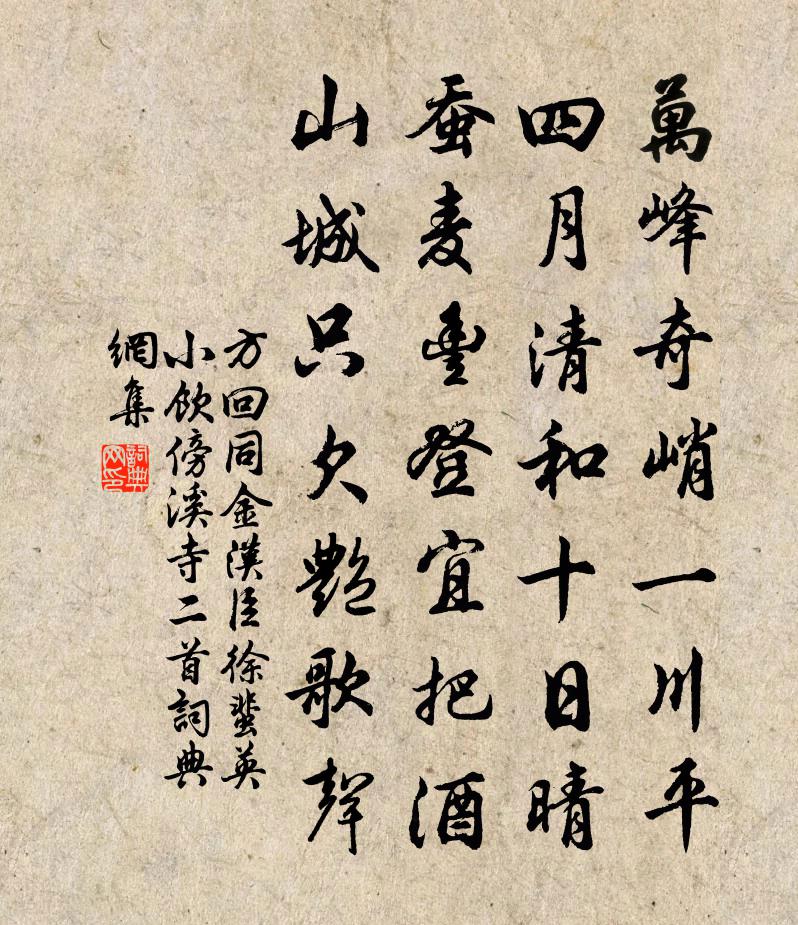 萬峰奇峭一川平
四月清和十日晴
蚕麦豊登宜把酒
山城只欠艷歌聲
方回同金漢臣徐蜚英
小飲傍溪寺二首詞典
網集
詞典
网印